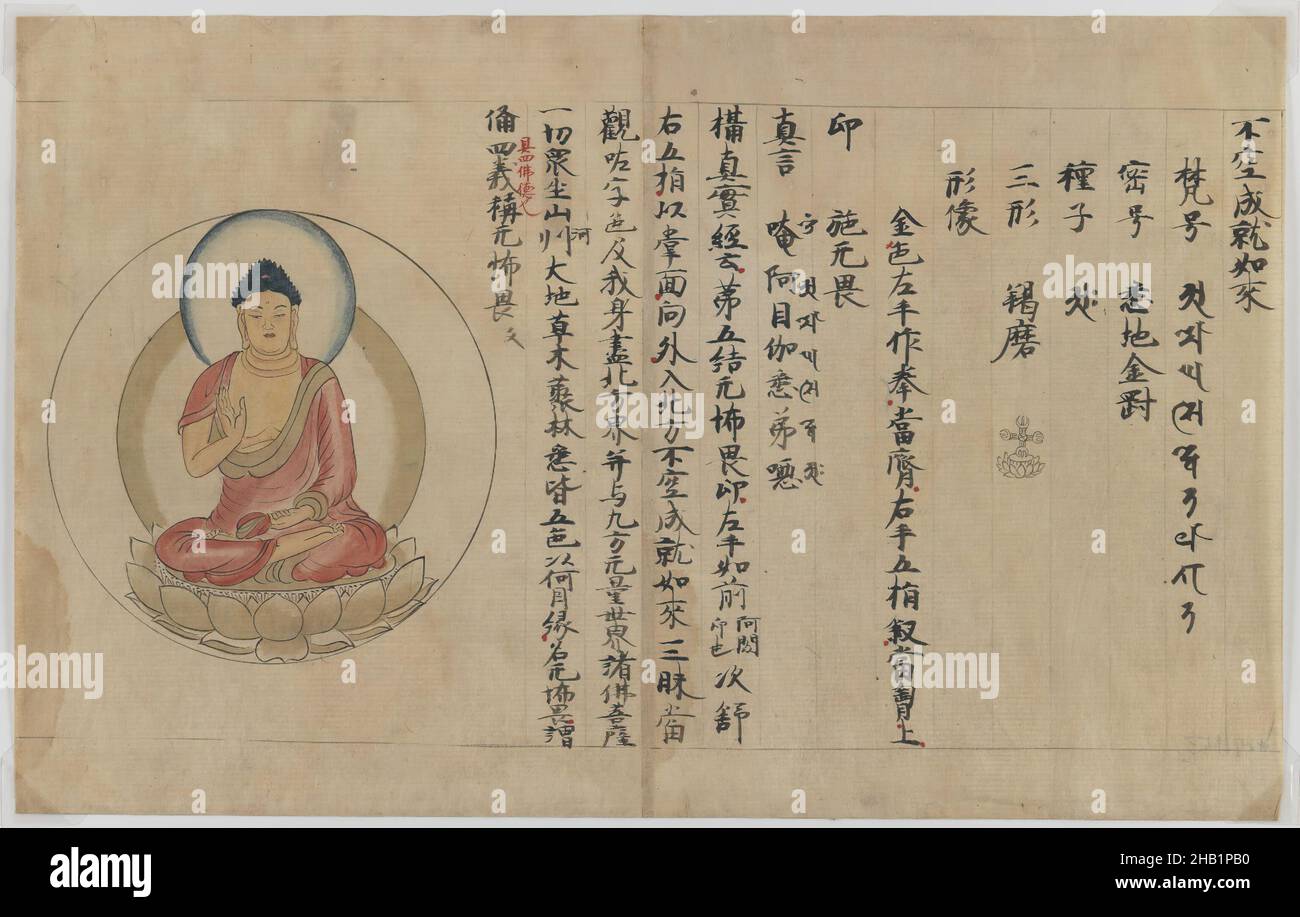 不空成就如來
梵号
密号 悉地金剛
種子
三形 羯磨
形像
金色左手作拳當臍右手五指叙當胸上
印 施无畏
真言 唵阿目伽悉弟噁
攝真實經云第五結无怖畏印左手如前 阿閦印也 次舒
右五指以掌面向外入北方不空成就如來三昧當
觀 字色及我身盡北方界并与九方无量世界諸佛菩薩
一切眾生山川河大地草木藂林悉皆五色以何因緣名无怖畏謂
具四佛德也
俻四義稱无怖畏 文
alamy
a
Image ID: 2HB1PB0
www.alamy.com